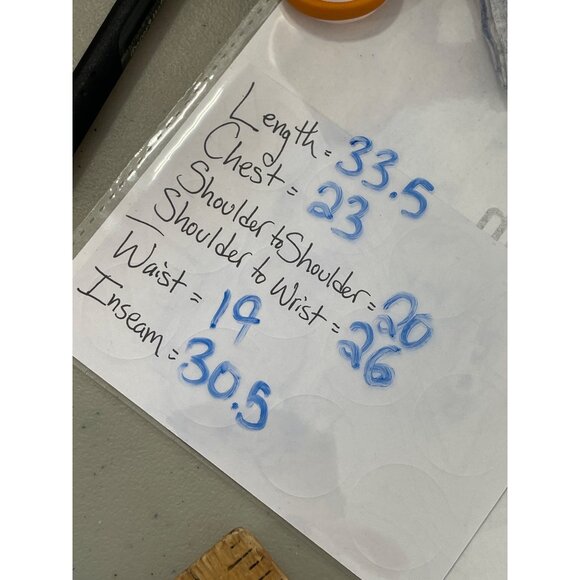 Length = 33.5
Chest = 23
Shoulder to Shoulder = 20
Shoulder to Wrist = 26
Waist = 19
Inseam = 30.5